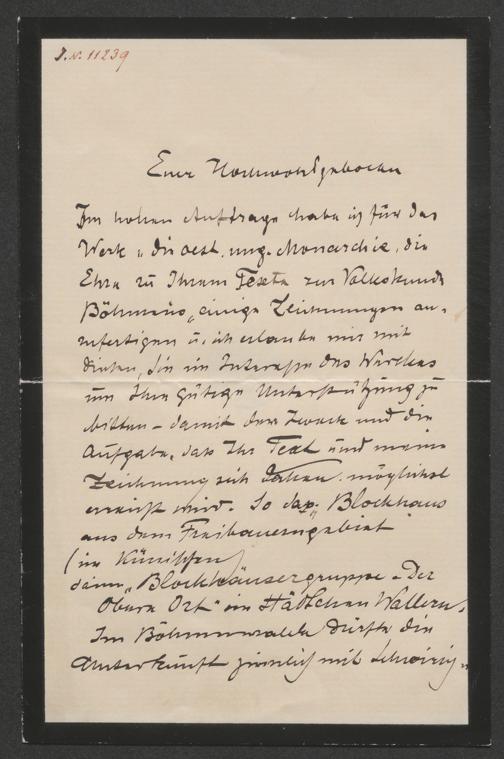 J. N. 11239
Euer Hochwohlgeboren
Im hohen Auftrage habe ich für das
Werk „die oest. ung. Monarchie, die
Ehre zu Ihrem Texte zur Volkskunde
Böhmens, einige Zeichnungen an-
zufertigen u. ich erlaube mir mit
diesen, Sie im Interesse des Werkes
um Ihre gütige Unterstützung zu
bitten – damit der Zweck und die
Aufgabe, dass Ihr Text und meine
Zeichnung sich decken, möglichst
erreicht wird. So das: „Blockhaus
aus dem Freibauerngebiet"
(im Künischen)
dann „Blockhäusergruppe „Der
Obere Ort" im Städtchen Wallern.
Im Böhmerwalde dürfte die
Unterkunft ziemlich mit Schwierig-